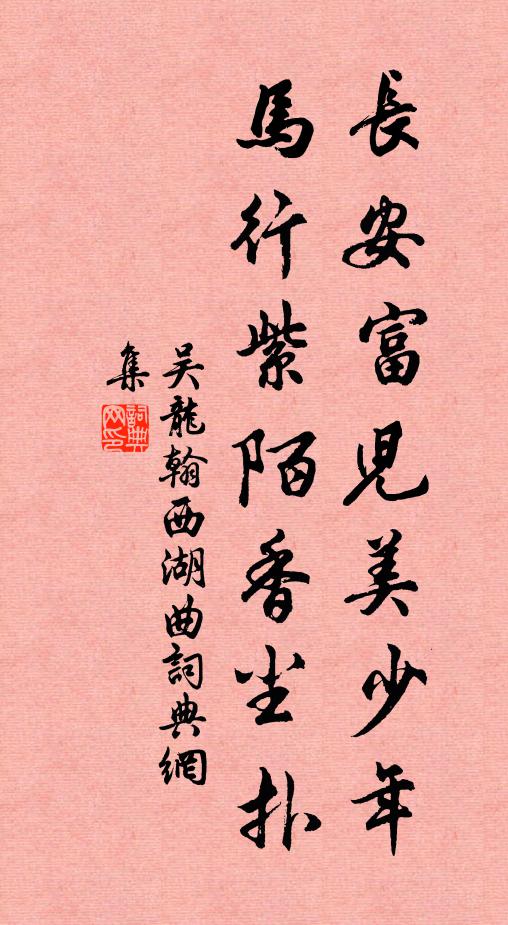 長安富児美少年
馬行紫陌香尘扑
吴龍翰西湖曲詞典網
集
詞典網印